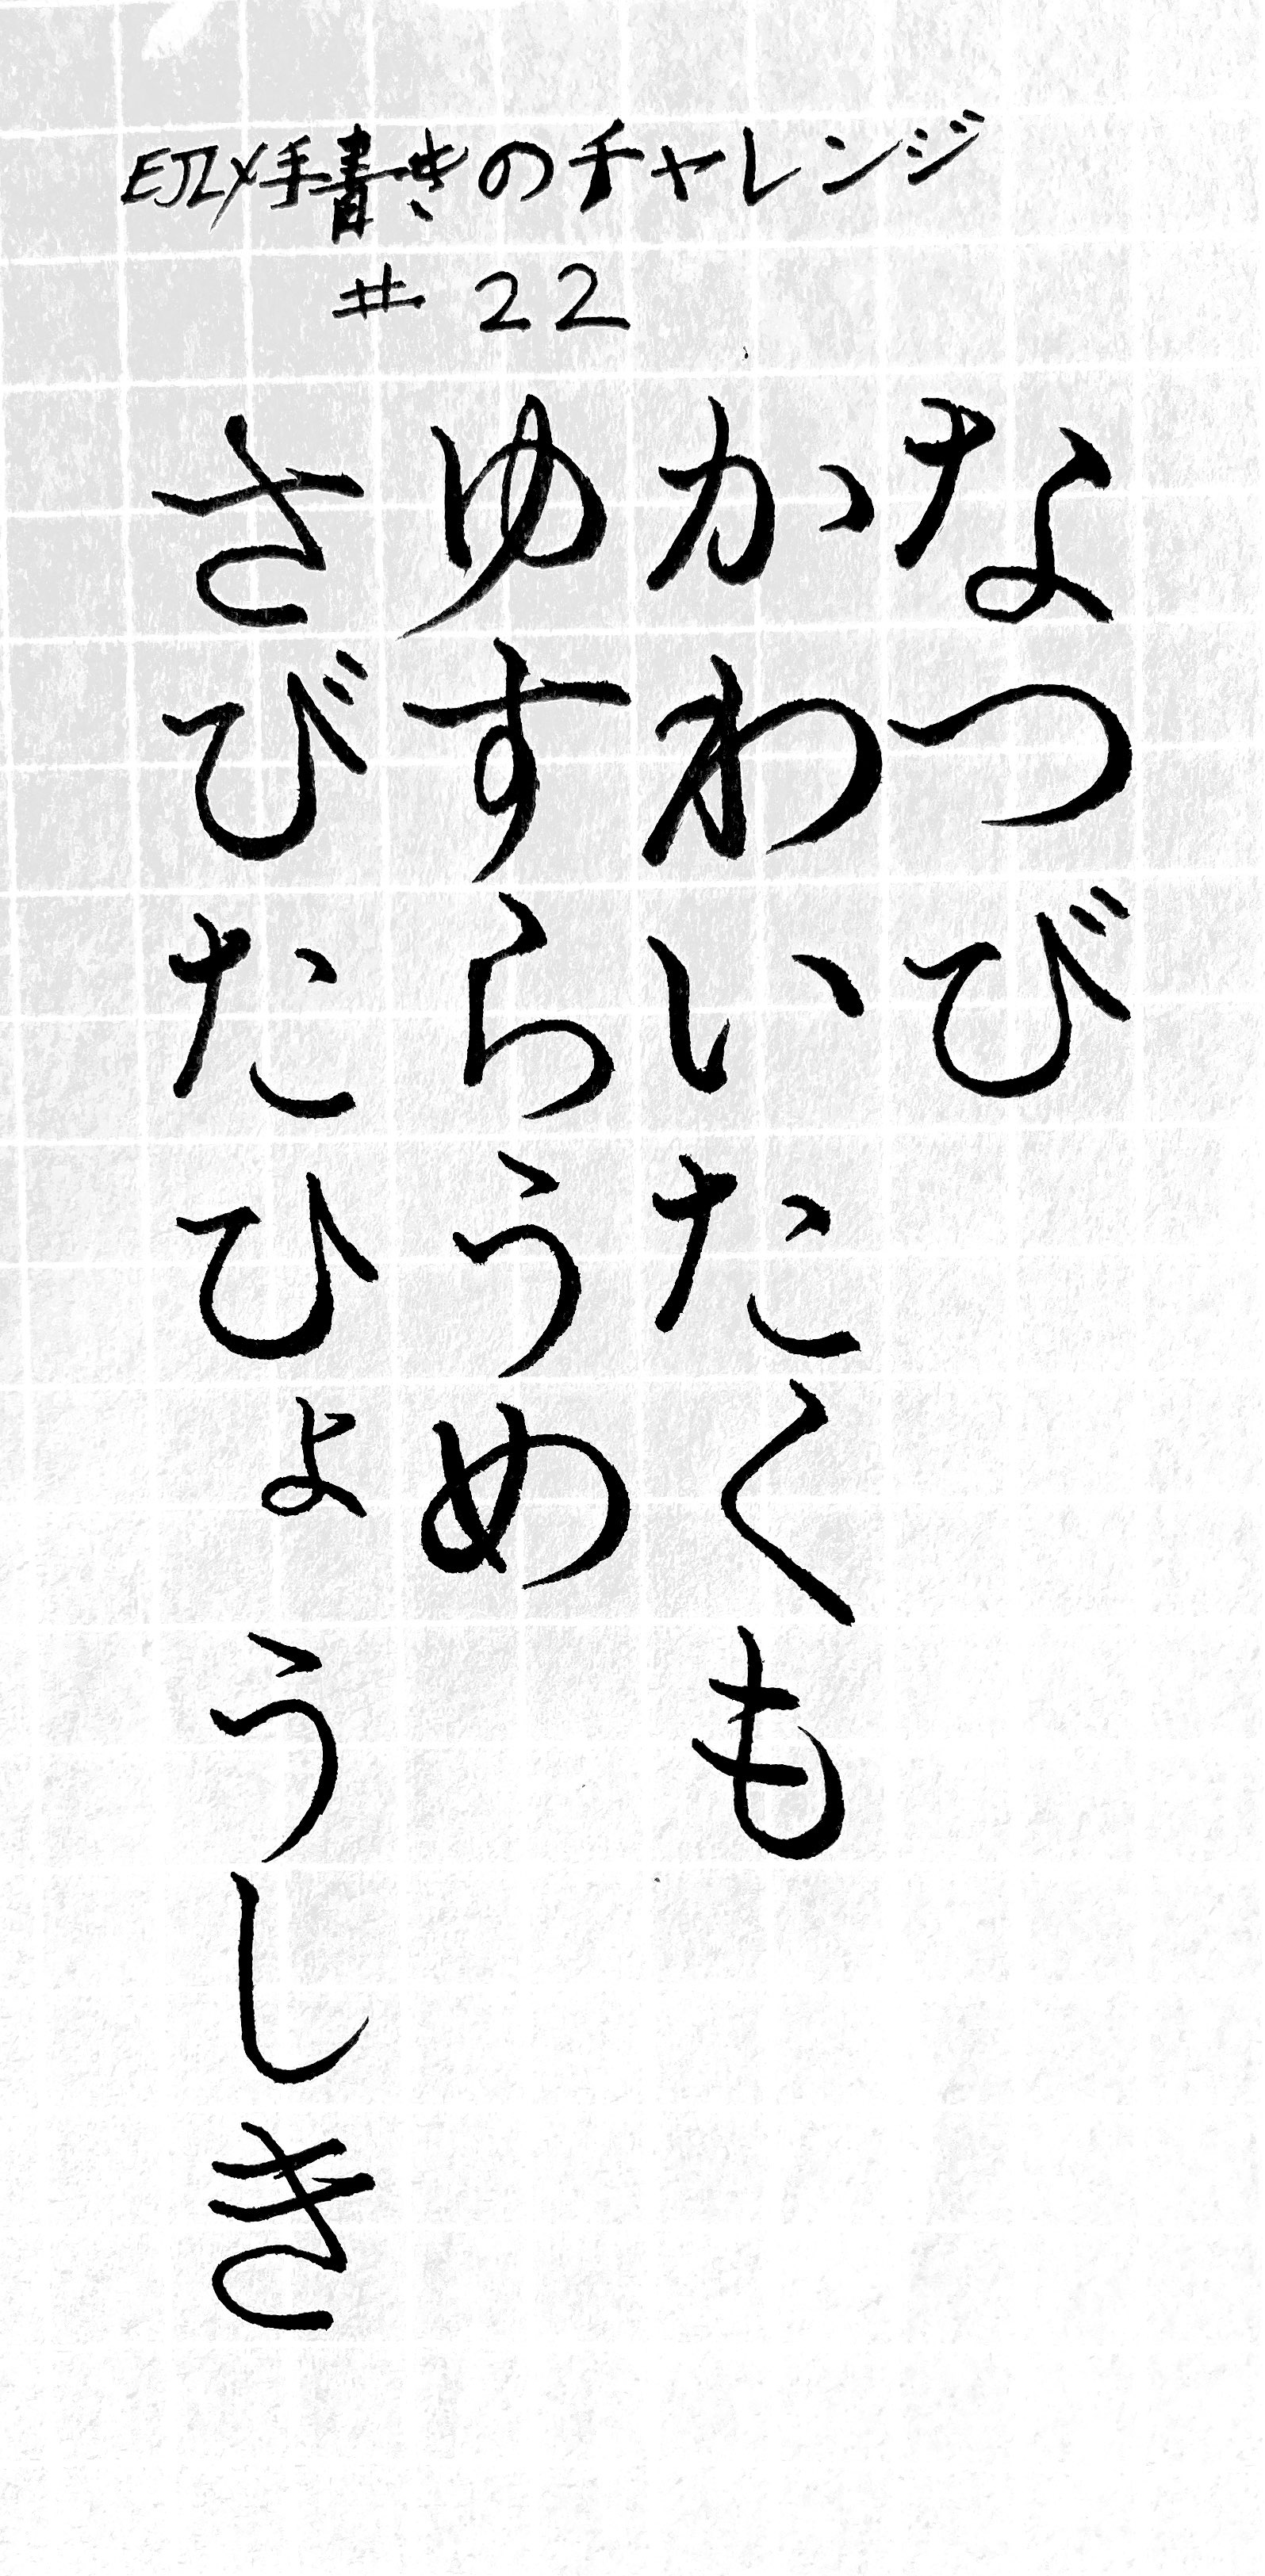 EJLX手書きのチャレンジ
#22
なつび
かわいたくも
ゆすらうめ
さびたひょうしき